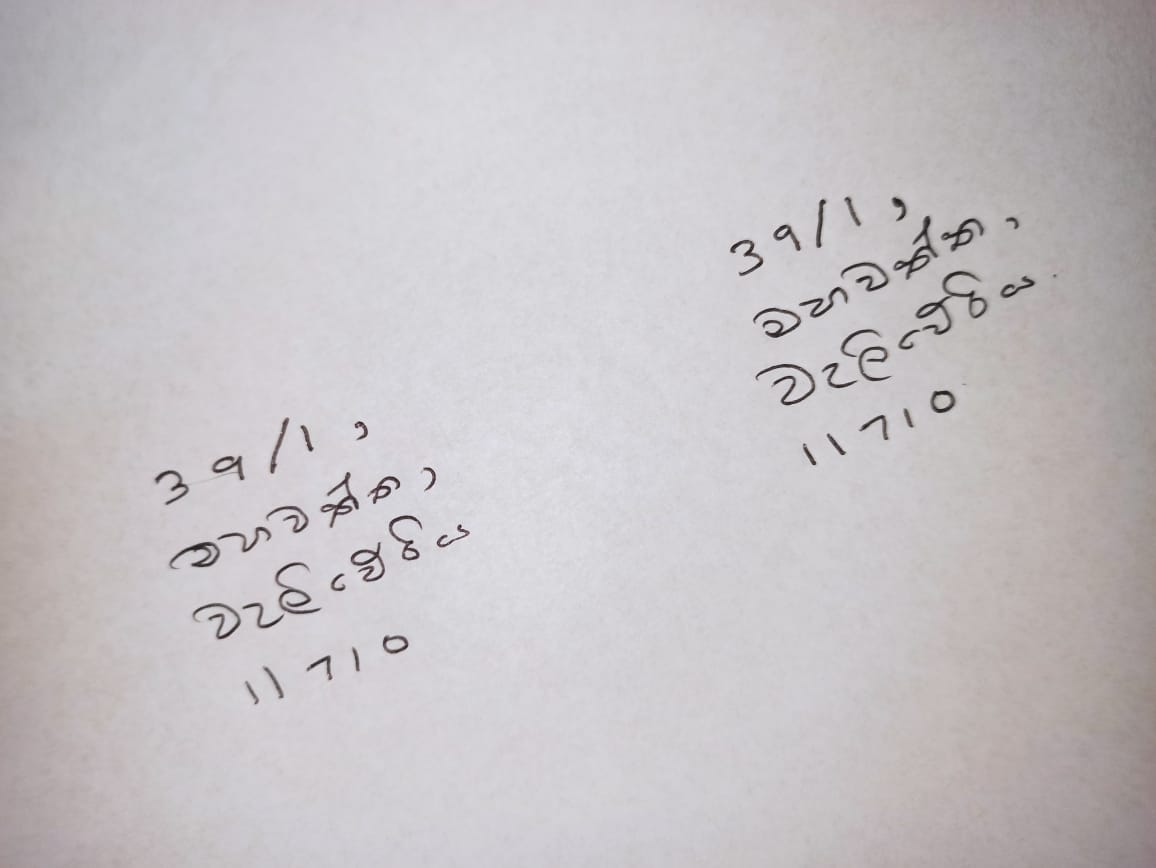 39/1,
මහවත්ත,
වැලිවේරිය
11710
39/1,
මහවත්ත,
වැලිවේරිය.
11710